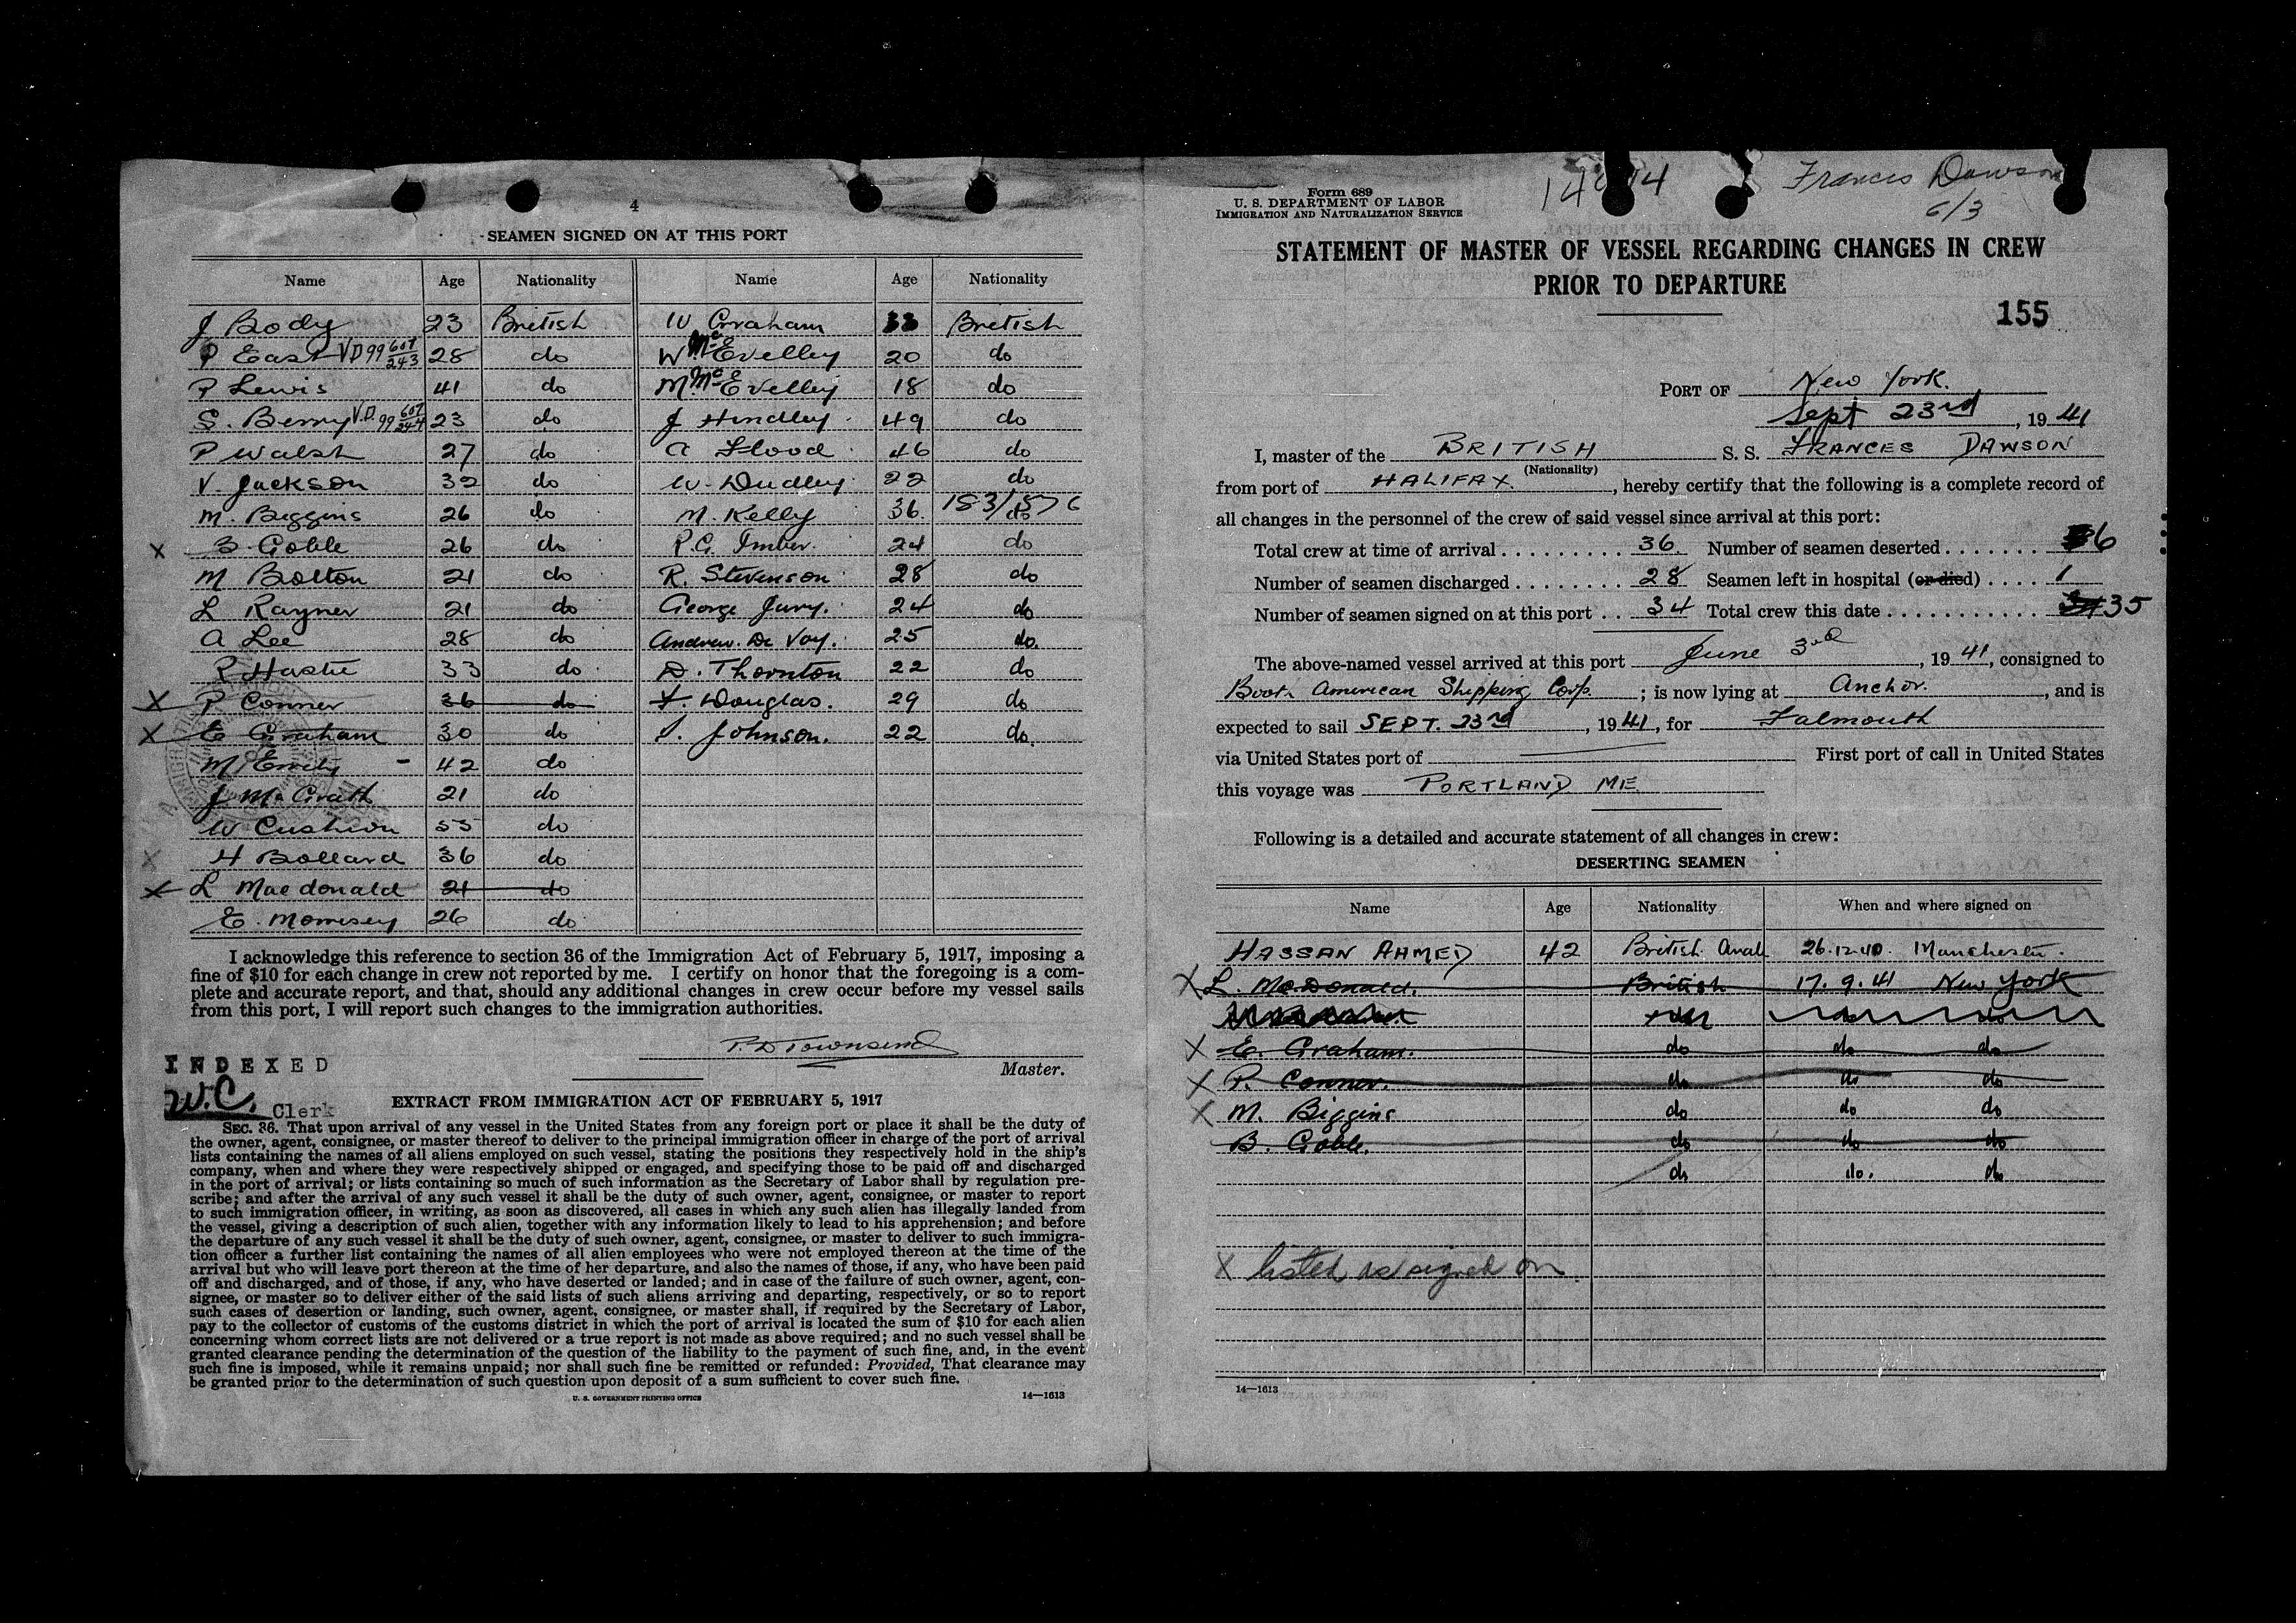 4
SEAMEN SIGNED ON AT THIS PORT
Name Age Nationality Name Age Nationality
J Body 23 British W Graham 33 British
P East VD 99 607/243 28 do W McEvelley 20 do
P Lewis 41 do M McEvelley 18 do
S. Berry V.D. 99 607/244 23 do J Hindley 49 do
P Walsh 27 do A Flood 46 do
V. Jackson 32 do W. Dudley 22 do
M. Biggins 26 do M. Kelly 36. 183/876 do
X B. Goble 26 do R.G. Imber. 24 do
M Bolton 21 do R. Stevenson 28 do
L Rayner 21 do George Jury. 24 do
A Lee 28 do Andrew. De Voy. 25 do.
P Hastie 33 do D. Thornton 22 do
X P Conner 36 do F. Douglas. 29 do
X E Graham 30 do Johnson. 22 do.
M 42 do
J McGrath 21 do
W Cushion 55 do
X H Bollard 36 do
X L Macdonald 21 do
E. Morrisey 26 do
I acknowledge this reference to section 36 of the Immigration Act of February 5, 1917, imposing a
fine of $10 for each change in crew not reported by me. I certify on honor that the foregoing is a com-
plete and accurate report, and that, should any additional changes in crew occur before my vessel sails
from this port, I will report such changes to the immigration authorities.
P. D Townsend
Master.
INDEXED
W.C. Clerk
EXTRACT FROM IMMIGRATION ACT OF FEBRUARY 5, 1917
SEC. 36. That upon arrival of any vessel in the United States from any foreign port or place it shall be the duty of
the owner, agent, consignee, or master thereof to deliver to the principal immigration officer in charge of the port of arrival
lists containing the names of all aliens employed on such vessel, stating the positions they respectively hold in the ship's
company, when and where they were respectively shipped or engaged, and specifying those to be paid off and discharged
in the port of arrival; or lists containing so much of such information as the Secretary of Labor shall by regulation pre-
scribe; and after the arrival of any such vessel it shall be the duty of such owner, agent, consignee, or master to report
to such immigration officer, in writing, as soon as discovered, all cases in which any such alien has illegally landed from
the vessel, giving a description of such alien, together with any information likely to lead to his apprehension; and before
the departure of any such vessel it shall be the duty of such owner, agent, consignee, or master to deliver to such immigra-
tion officer a further list containing the names of all alien employees who were not employed thereon at the time of the
arrival but who will leave port thereon at the time of her departure, and also the names of those, if any, who have been paid
off and discharged, and of those, if any, who have deserted or landed; and in case of the failure of such owner, agent, con-
signee, or master so to deliver either of the said lists of such aliens arriving and departing, respectively, or so to report
such cases of desertion or landing, such owner, agent, consignee, or master shall, if required by the Secretary of Labor,
pay to the collector of customs of the customs district in which the port of arrival is located the sum of $10 for each alien
concerning whom correct lists are not delivered or a true report is not made as above required; and no such vessel shall be
granted clearance pending the determination of the question of the liability to the payment of such fine, and, in the event
such fine is imposed, while it remains unpaid; nor shall such fine be remitted or refunded: Provided, That clearance may
be granted prior to the determination of such question upon deposit of a sum sufficient to cover such fine.
U. S. GOVERNMENT PRINTING OFFICE 14—1613
Form 689
U. S. DEPARTMENT OF LABOR
IMMIGRATION AND NATURALIZATION SERVICE
Frances Dawson
6/3
STATEMENT OF MASTER OF VESSEL REGARDING CHANGES IN CREW
PRIOR TO DEPARTURE
155
PORT OF New York.
Sept 23rd, 1941
I, master of the BRITISH S. S. FRANCES DAWSON
(Nationality)
from port of HALIFAX., hereby certify that the following is a complete record of
all changes in the personnel of the crew of said vessel since arrival at this port:
Total crew at time of arrival . . . . . . . . . 36. Number of seamen deserted . . . . . . . 6
Number of seamen discharged . . . . . . . . 28 Seamen left in hospital (or died) . . . . 1
Number of seamen signed on at this port . . 34 Total crew this date . . . . . . . . . . . . 34 35
The above-named vessel arrived at this port June 3rd, 1941, consigned to
Booth American Shipping Corp. ; is now lying at Anchor., and is
expected to sail SEPT. 23rd, 1941, for Falmouth
via United States port of First port of call in United States
this voyage was PORTLAND ME
Following is a detailed and accurate statement of all changes in crew:
DESERTING SEAMEN
Name Age Nationality When and where signed on
HASSAN AHMED 42 British Arab 26.12.40. Manchester.
X L. McDonald. British 17. 9. 41 New York
X E. Graham. do do do
X P. Conner. do do do
X M. Biggins do do do
B. Goble. do do do
do do. do
X listed as signed on.
14—1613